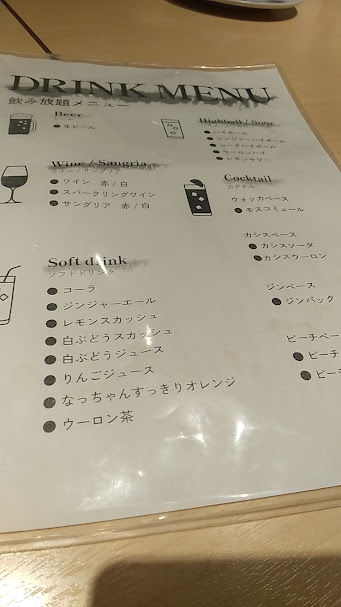 DRINK MENU
飲み放題メニュー
Beer
●生ビール
Wine / Sangria
ワイン / サングリア
●ワイン 赤 / 白
●スパークリングワイン
●サングリア 赤 / 白
Soft drink
ソフトドリンク
●コーラ
●ジンジャーエール
●レモンスカッシュ
●白ぶどうスカッシュ
●白ぶどうジュース
●りんごジュース
●なっちゃんすっきりオレンジ
●ウーロン茶
Highball / Sour
●ハイボール
●ジンジャーハイボール
●コークハイボール
●ウーロンハイ
●レモンサワー
Cocktail
カクテル
ウォッカベース
●モスコミュール
カシスベース
●カシスソーダ
●カシスウーロン
ジンベース
●ジンバック
ピーチベー
●ピーチ
●ピー